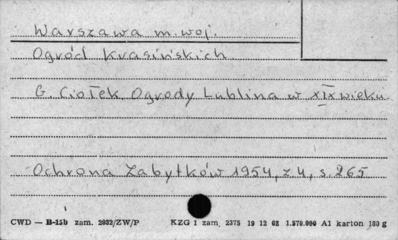 Warszawa m. woj.
Ogród Krasińskich
G. Ciołek, Ogrody Lublina w XIX wieku
Ochrona Zabytków 1954, z 4, s. 265
CWD — B-15b zam. 2032/ZW/P KZG 1 zam. 2375 19 12 62 1.570.000 A1 karton 180 g